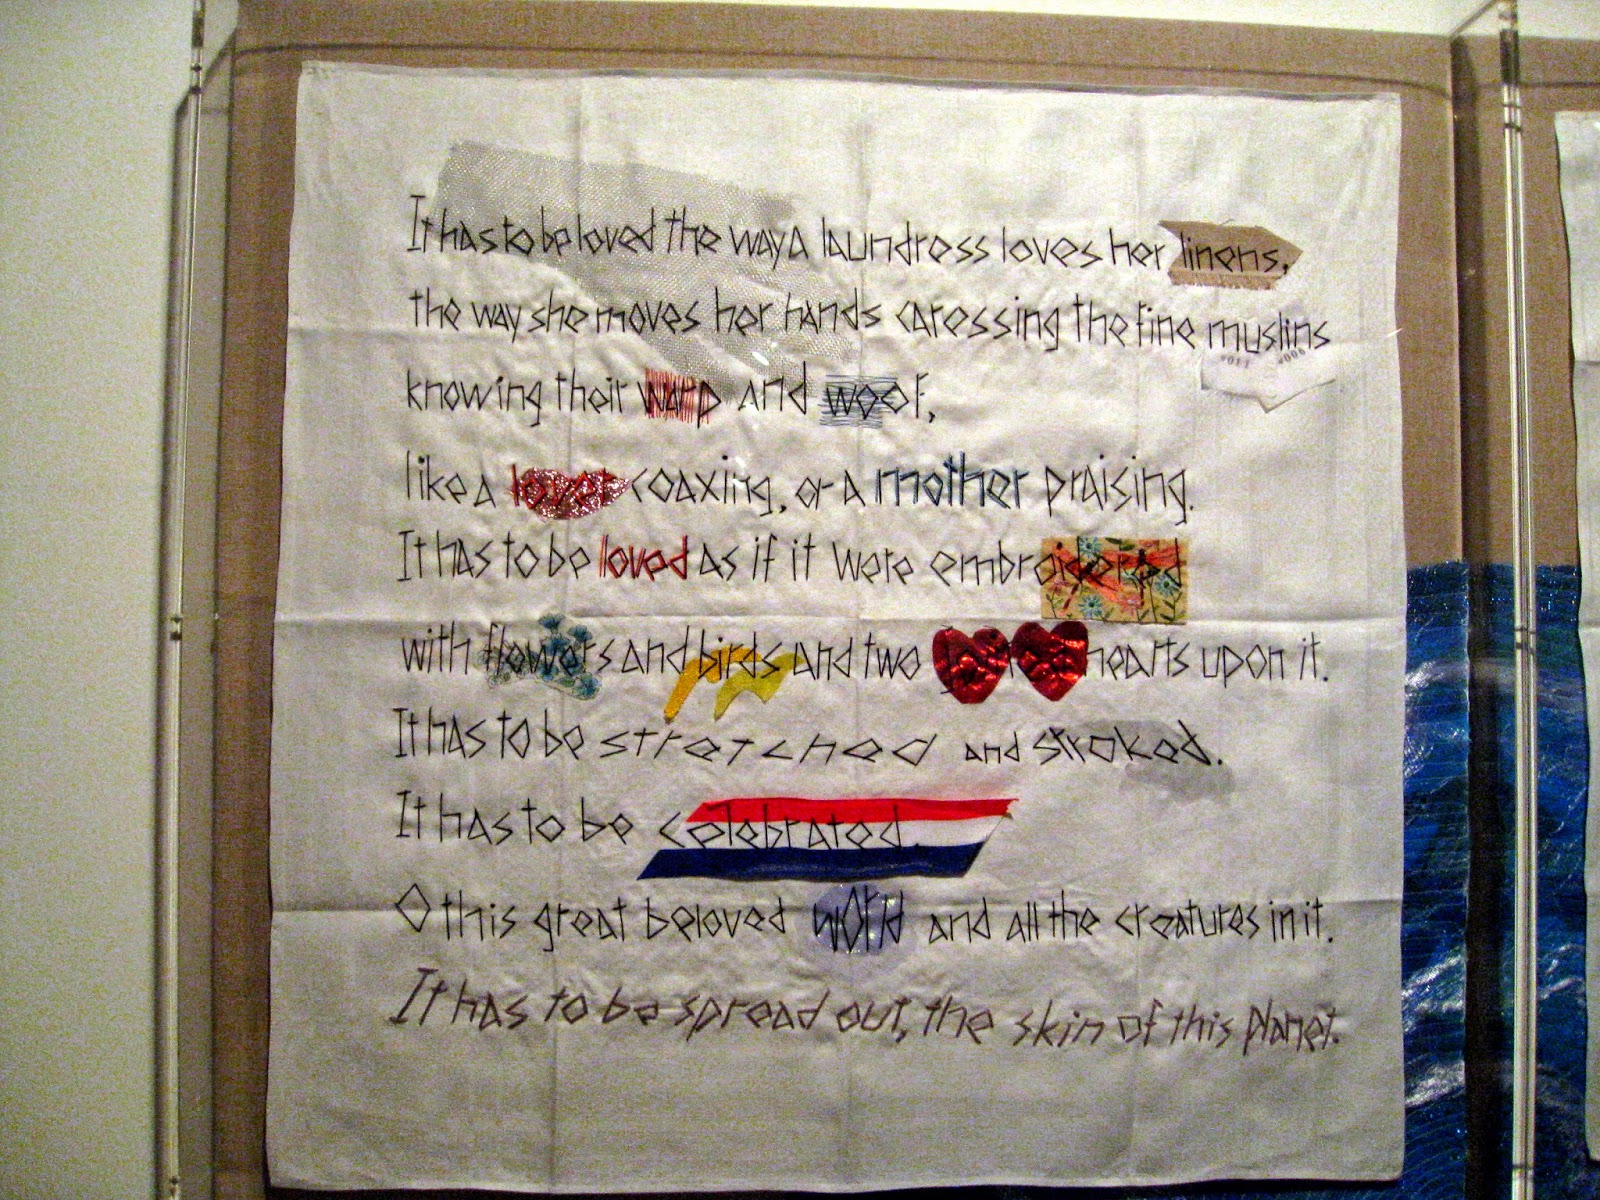 It has to be loved the way a laundress loves her linens,
the way she moves her hands caressing the fine muslins
knowing their warp and woof,
like a lover coaxing, or a mother praising.
It has to be loved as if it were embroidered
with flowers and birds and two joined hearts upon it.
It has to be stretched and stroked.
It has to be celebrated.
O this great beloved world and all the creatures in it.
It has to be spread out, the skin of this planet.